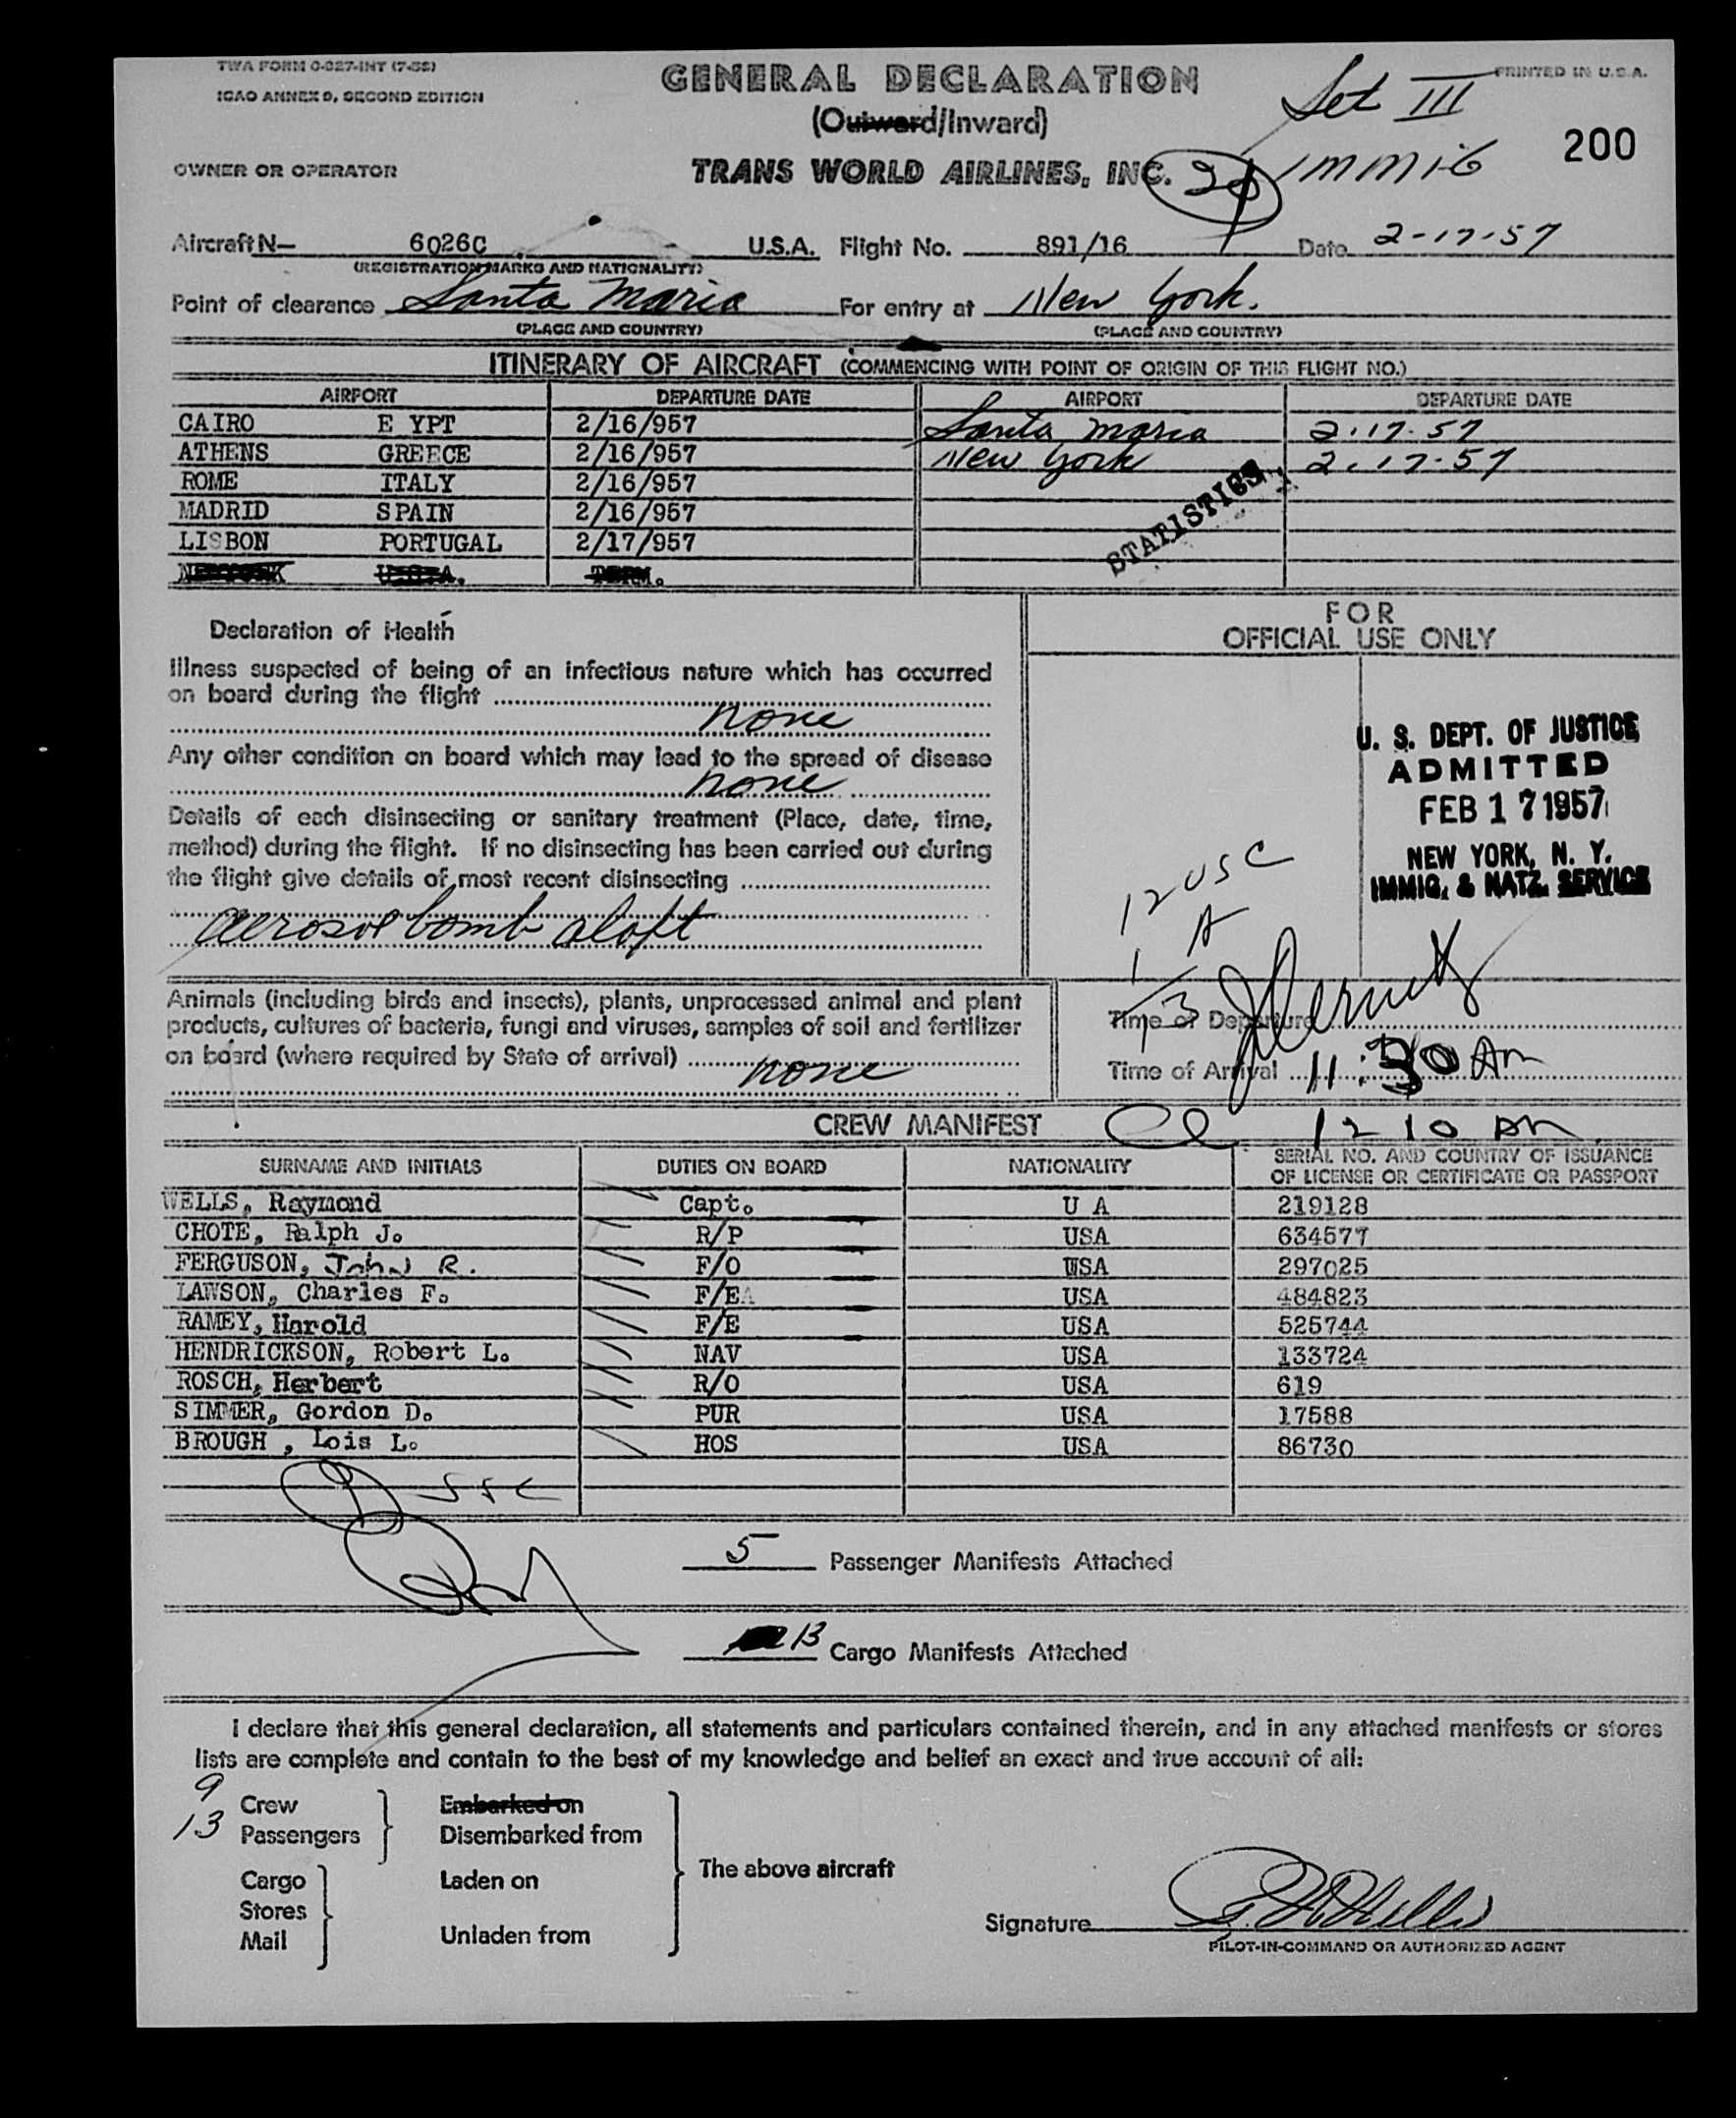 TWA FORM O-027-INT (7-55)
ICAO ANNEX 9, SECOND EDITION
GENERAL DECLARATION
PRINTED IN U.S.A.
(Outward/Inward)
Set III
200
OWNER OR OPERATOR
TRANS WORLD AIRLINES, INC.
Immig
Aircraft N— 6026C U.S.A. Flight No. 891/16 Date 2-17-57
(REGISTRATION MARKS AND NATIONALITY)
Point of clearance Santa Maria For entry at New York.
(PLACE AND COUNTRY) (PLACE AND COUNTRY)
ITINERARY OF AIRCRAFT (COMMENCING WITH POINT OF ORIGIN OF THIS FLIGHT NO.)
AIRPORT DEPARTURE DATE AIRPORT DEPARTURE DATE
CAIRO E YPT 2/16/957 Santa Maria 2.17.57
ATHENS GREECE 2/16/957 New York 2.17.57
ROME ITALY 2/16/957
MADRID SPAIN 2/16/957
LISBON PORTUGAL 2/17/957
STATISTICS
Declaration of Health
Illness suspected of being of an infectious nature which has occurred
on board during the flight
none
Any other condition on board which may lead to the spread of disease
none
Details of each disinsecting or sanitary treatment (Place, date, time,
method) during the flight. If no disinsecting has been carried out during
the flight give details of most recent disinsecting
aerosol bomb aloft
FOR
OFFICIAL USE ONLY
U. S. DEPT. OF JUSTICE
ADMITTED
FEB 17 1957
NEW YORK, N. Y.
IMMIG. & NATZ. SERVICE
12 USC
1 A
13
Animals (including birds and insects), plants, unprocessed animal and plant
products, cultures of bacteria, fungi and viruses, samples of soil and fertilizer
on board (where required by State of arrival) none
Time of Departure
Time of Arrival 11:30 Am
CREW MANIFEST
12 10 pm
SURNAME AND INITIALS DUTIES ON BOARD NATIONALITY SERIAL NO. AND COUNTRY OF ISSUANCE
OF LICENSE OR CERTIFICATE OR PASSPORT
WELLS, Raymond Capt. U A 219128
CHOTE, Ralph J. R/P USA 634577
FERGUSON, John R. F/O USA 297025
LAWSON, Charles F. F/E USA 484823
RAMEY, Harold F/E USA 525744
HENDRICKSON, Robert L. NAV USA 133724
ROSCH, Herbert R/O USA 619
SIMMER, Gordon D. PUR USA 17588
BROUGH , Lois L. HOS USA 86730
5 Passenger Manifests Attached
13 Cargo Manifests Attached
I declare that this general declaration, all statements and particulars contained therein, and in any attached manifests or stores
lists are complete and contain to the best of my knowledge and belief an exact and true account of all:
9 Crew Embarked on
13 Passengers Disembarked from
The above aircraft
Cargo Laden on
Stores
Mail Unladen from
Signature
PILOT-IN-COMMAND OR AUTHORIZED AGENT